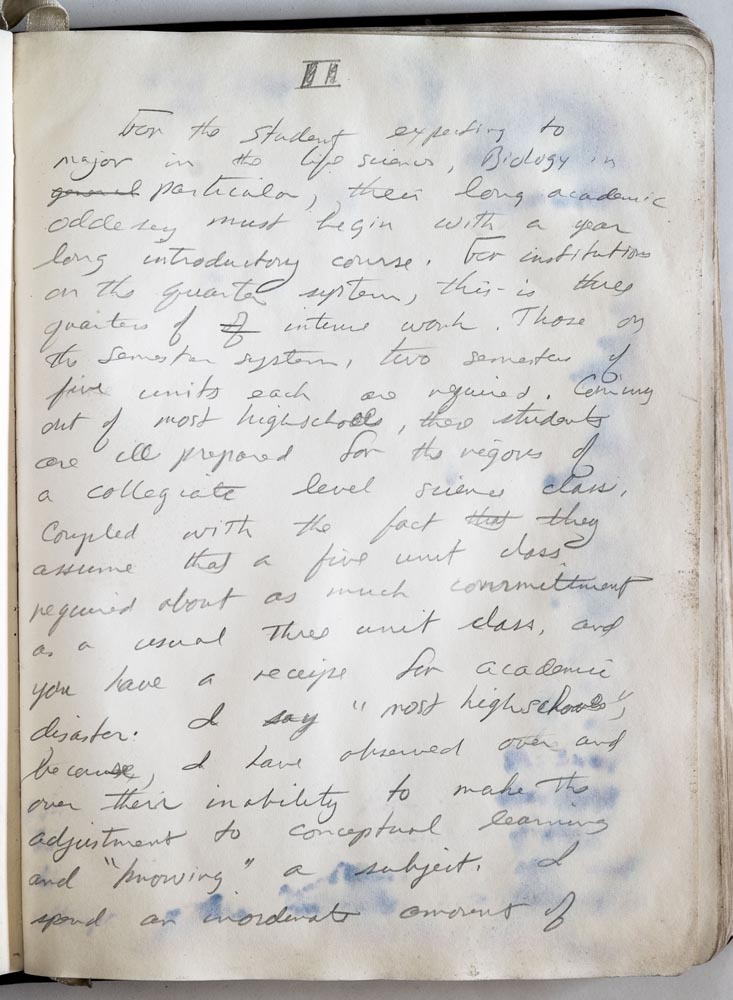 II
For the student expecting to
major in the life science, Biology in
general particular, their long academic
oddesey must begin with a year
long introductory course. For institutions
on the quarter system, this is three
quarters of intense work. Those on
the semester system, two semesters of
five units each are required. Coming
out of most highschools, these students
are ill prepared for the rigors of
a collegiate level science class.
Coupled with the fact that they
assume that a five unit class
required about as much committment
as a usual three unit class, and
you have a receipe for academic
disaster. I say "most highschools",
because, I have observed over and
over their inability to make the
adjustment to conceptual learning
and "knowing" a subject. I
spend an inordinate amount of